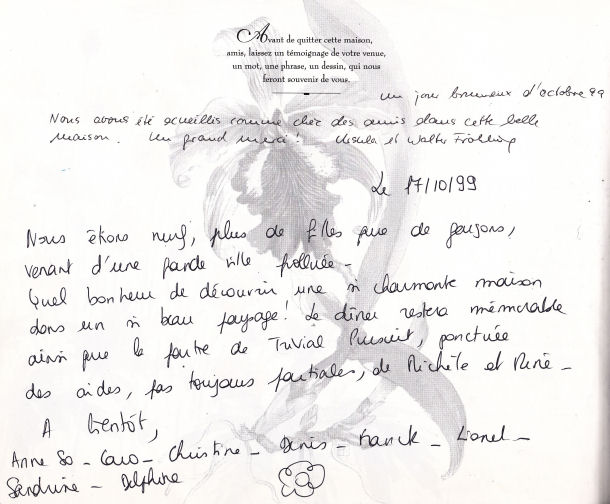 Avant de quitter cette maison,
amis, laissez un témoignage de votre venue,
un mot, une phrase, un dessin, qui nous
feront souvenir de vous.
un jour brumeux d'octobre 99
Nous avons été accueillis comme chez des amis dans cette belle
maison. Un grand merci ! Ursula et Walter
Le 17/10/99
Nous étions neuf, plus de filles que de garçons,
venant d'une grande ville polluée -
Quel bonheur de découvrir une si charmante maison
dans un si beau paysage ! Le dîner restera mémorable
ainsi que la partie de Trivial Pursuit, ponctuée
des aides, pas toujours partiales, de Michèle et René -
A bientôt,
Anne So - Caro - Christine - Denis - Franck - Lionel -
Sandrine - Delphine